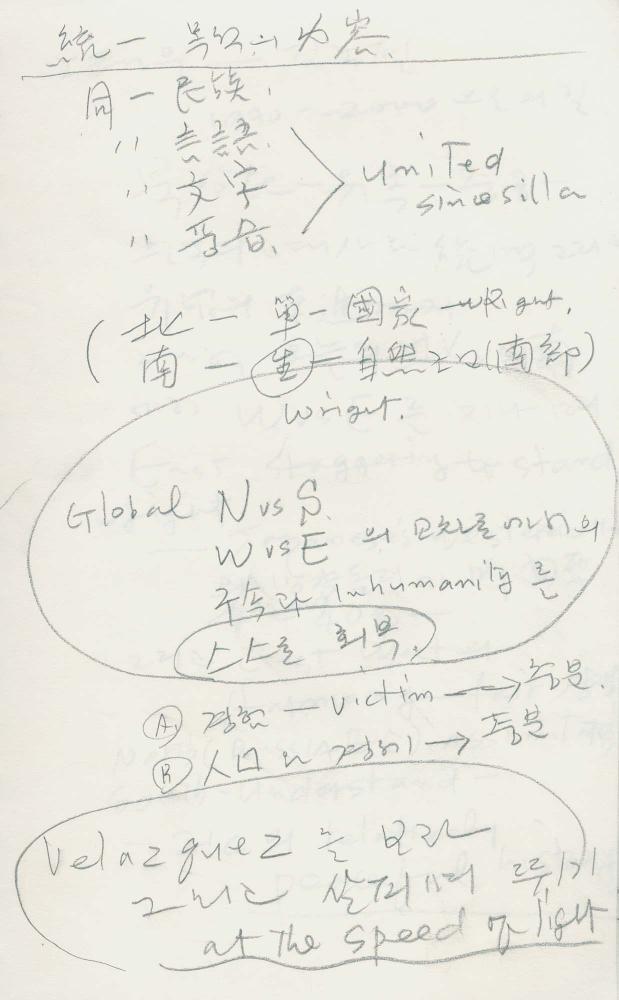 統一 목적의 內容
同一 民族,
〃 言語.
〃 文字
〃 풍습.
united
sinosilla
(北 - 單一 國家 - wright.
南 - 生 - 自然 (南部)
wright.
Global N vs S.
W vs E 의 교차로에서의
구속과 Inhumanity를
스스로 회복.
Ⓐ 경험 - victim → 충분.
Ⓑ 人口와 경제 → 충분
Velazquez 를 보라
그리고 살피며 뛰기
at the speed of light